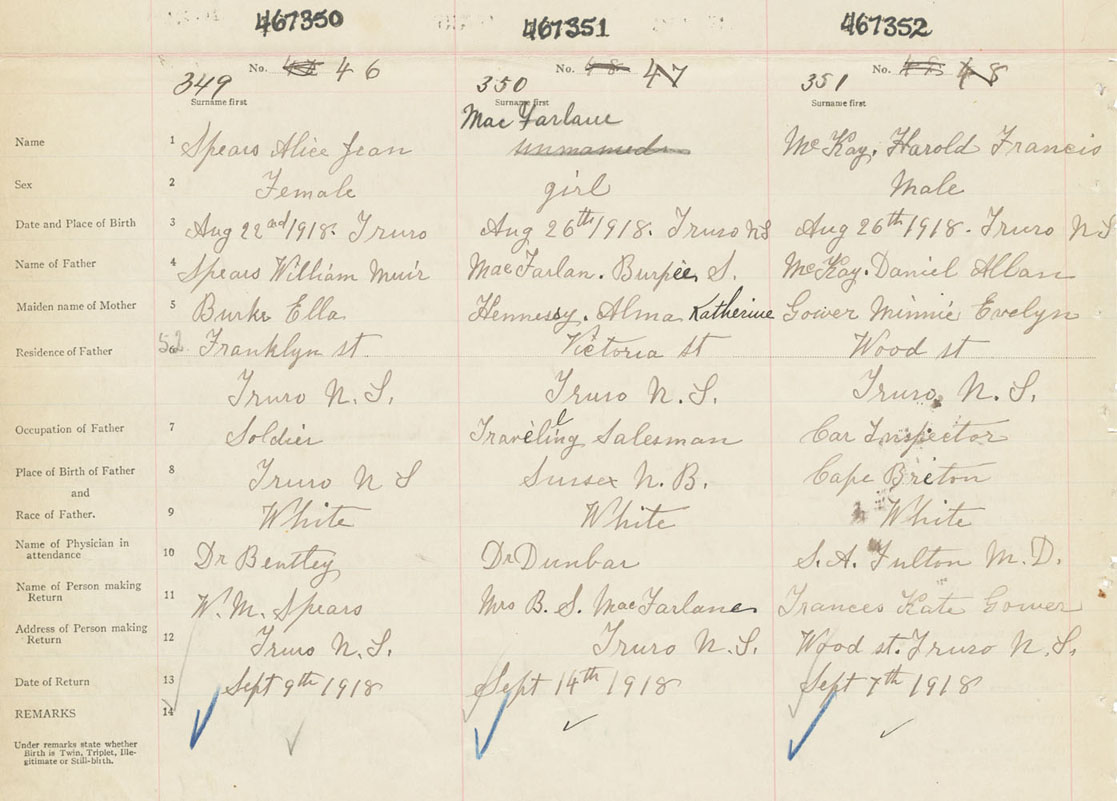 467350 467351 467352
349 No. 46 350 No. 47 351 No. 48
Surname first Surname first Surname first
MacFarlane
Name 1 Spears Alice Jean unnamed McKay, Harold Francis
Sex 2 Female girl Male
Date and Place of Birth 3 Aug 22nd 1918. Truro Aug 26th 1918. Truro NS Aug 26th 1918. Truro NS
Name of Father 4 Spears William Muir MacFarlan. Burpee S. McKay. Daniel Allan
Maiden name of Mother 5 Burke Ella Hennessy. Alma Katherine Gower Minnie Evelyn
Residence of Father 52 Franklyn st. Victoria st Wood st
Truro N.S. Truro N.S. Truro N.S.
Occupation of Father 7 Soldier Travelling Salesman Car Inspector
Place of Birth of Father 8 Truro N S Sussex N.B. Cape Breton
and
Race of Father. 9 White White White
Name of Physician in attendance 10 Dr Bentley Dr Dunbar S.A. Fulton M.D.
Name of Person making Return 11 W.M. Spears Mrs B.S. MacFarlane Frances Kate Gower
Address of Person making Return 12 Truro N.S. Truro N.S. Wood st. Truro N.S.
Date of Return 13 Sept 9th 1918 Sept 14th 1918 Sept 7th 1918
REMARKS 14
Under remarks state whether
Birth is Twin, Triplet, Ille-
gitimate or Still-birth.